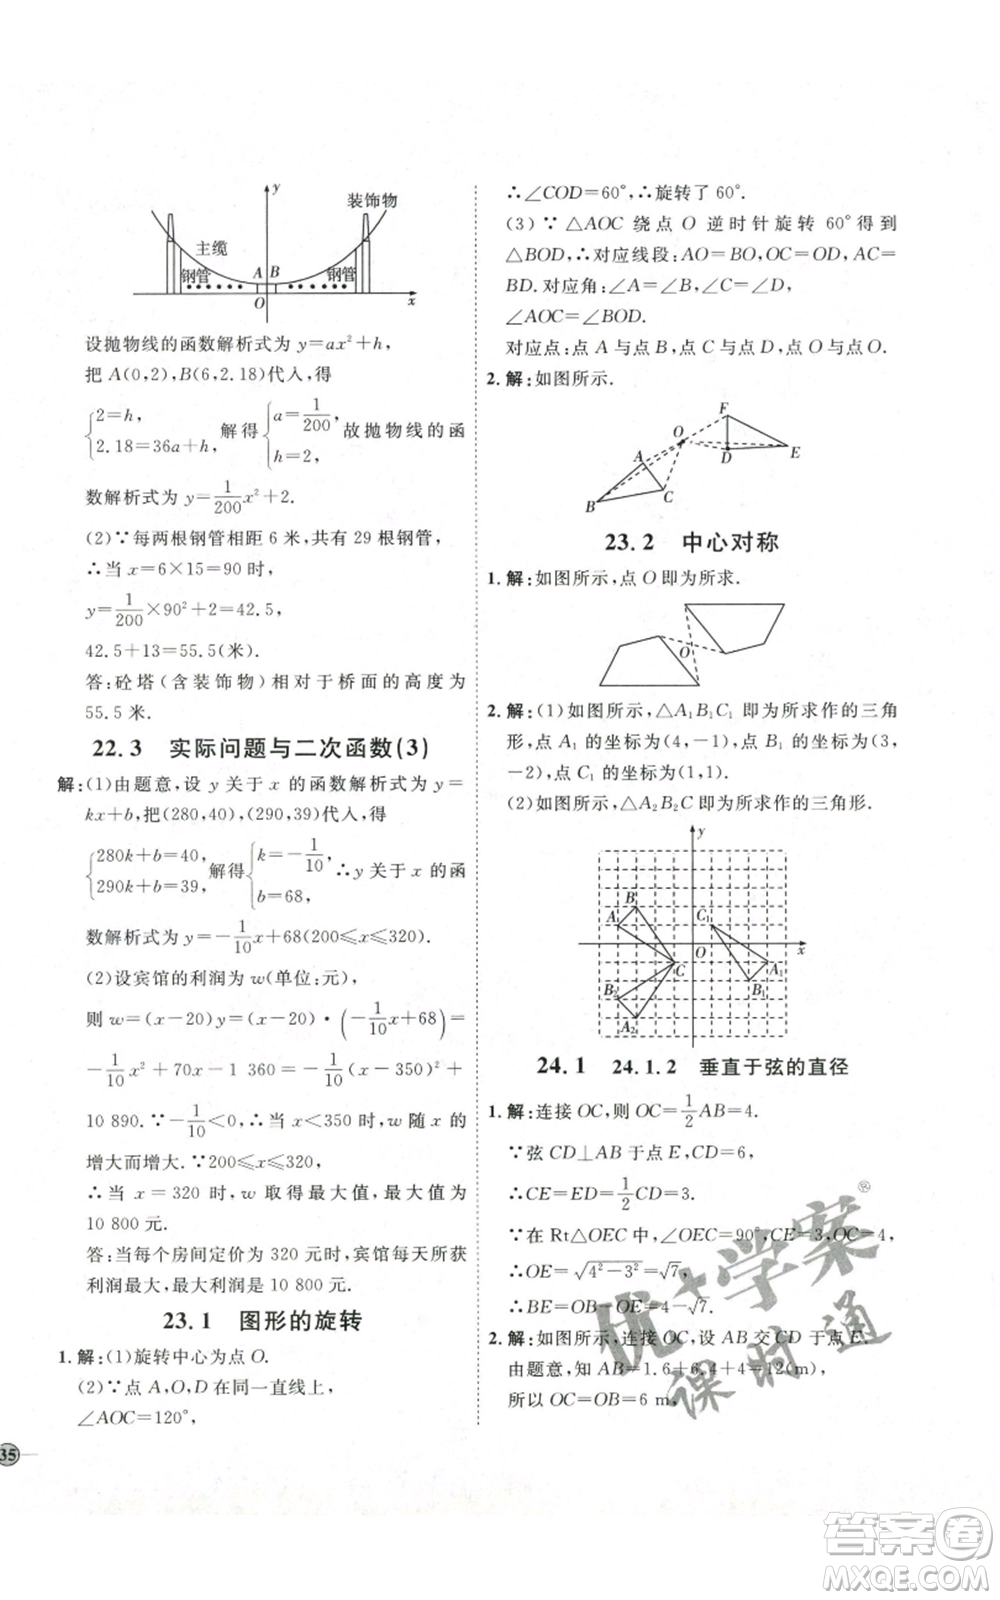 y
装饰物
主缆
钢管
A B
钢管
O
x
设抛物线的函数解析式为 y=ax²+h,
把 A(0,2),B(6,2.18)代入,得
{2=h, 2.18=36a+h, 解得 {a=1/200, h=2, 故抛物线的函
数解析式为 y=1/200x²+2.
(2)∵每两根钢管相距 6 米,共有 29 根钢管,
∴当 x=6×15=90 时,
y=1/200×90²+2=42.5,
42.5+13=55.5(米).
答:砼塔(含装饰物)相对于桥面的高度为
55.5 米.
22.3 实际问题与二次函数(3)
解:(1)由题意,设 y 关于 x 的函数解析式为 y=
kx+b,把(280,40),(290,39)代入,得
{280k+b=40, 290k+b=39, 解得 {k=-1/10, b=68, ∴y 关于 x 的函
数解析式为 y=-1/10x+68(200≤x≤320).
(2)设宾馆的利润为 w(单位:元),
则 w=(x-20)y=(x-20)·(-1/10x+68)=
-1/10x²+70x-1 360=-1/10(x-350)²+
10 890.∵-1/10<0,∴当 x<350 时,w 随 x 的
增大而增大.∵200≤x≤320,
∴当 x=320 时,w 取得最大值,最大值为
10 800 元.
答:当每个房间定价为 320 元时,宾馆所获
利润最大,最大利润是 10 800 元.
23.1 图形的旋转
1.解:(1)旋转中心为点 O.
(2)∵点 A,O,D 在同一直线上,
∠AOC=120°,
35
∴∠COD=60°,∴旋转了 60°.
(3)∵△AOC 绕点 O 逆时针旋转 60°得到
△BOD,∴对应线段:AO=BO,OC=OD,AC=
BD.对应角:∠A=∠B,∠C=∠D,
∠AOC=∠BOD.
对应点:点 A 与点 B,点 C 与点 D,点 O 与点 O.
2.解:如图所示.
F
O
A
D
E
C
B
23.2 中心对称
1.解:如图所示,点 O 即为所求.
O
2.解:(1)如图所示,△A₁B₁C₁即为所求作的三角
形,点 A₁ 的坐标为(4,-1),点 B₁ 的坐标为(3,
-2),点 C₁ 的坐标为(1,1).
(2)如图所示,△A₂B₂C 即为所求作的三角形.
y
B
A
C₁
x
C
O
A₁
B₁
B₂
A₂
24.1 24.1.2 垂直于弦的直径
1.解:连接 OC,则 OC=1/2AB=4.
∵弦 CD⊥AB 于点 E,CD=6,
∴CE=ED=1/2CD=3.
∵在 Rt△OEC 中,∠OEC=90°,CE=3,OC=4,
∴OE=√4²-3²=√7,
∴BE=OB-OE=4-√7.
2.解:如图所示,连接 OC,设 AB 交 CD 于点 E,
由题意,知 AB=1.6+6.4+4=12(m),
所以 OC=OB=6 m,
优+学案®
课时通
答案卷
MXQE.COM